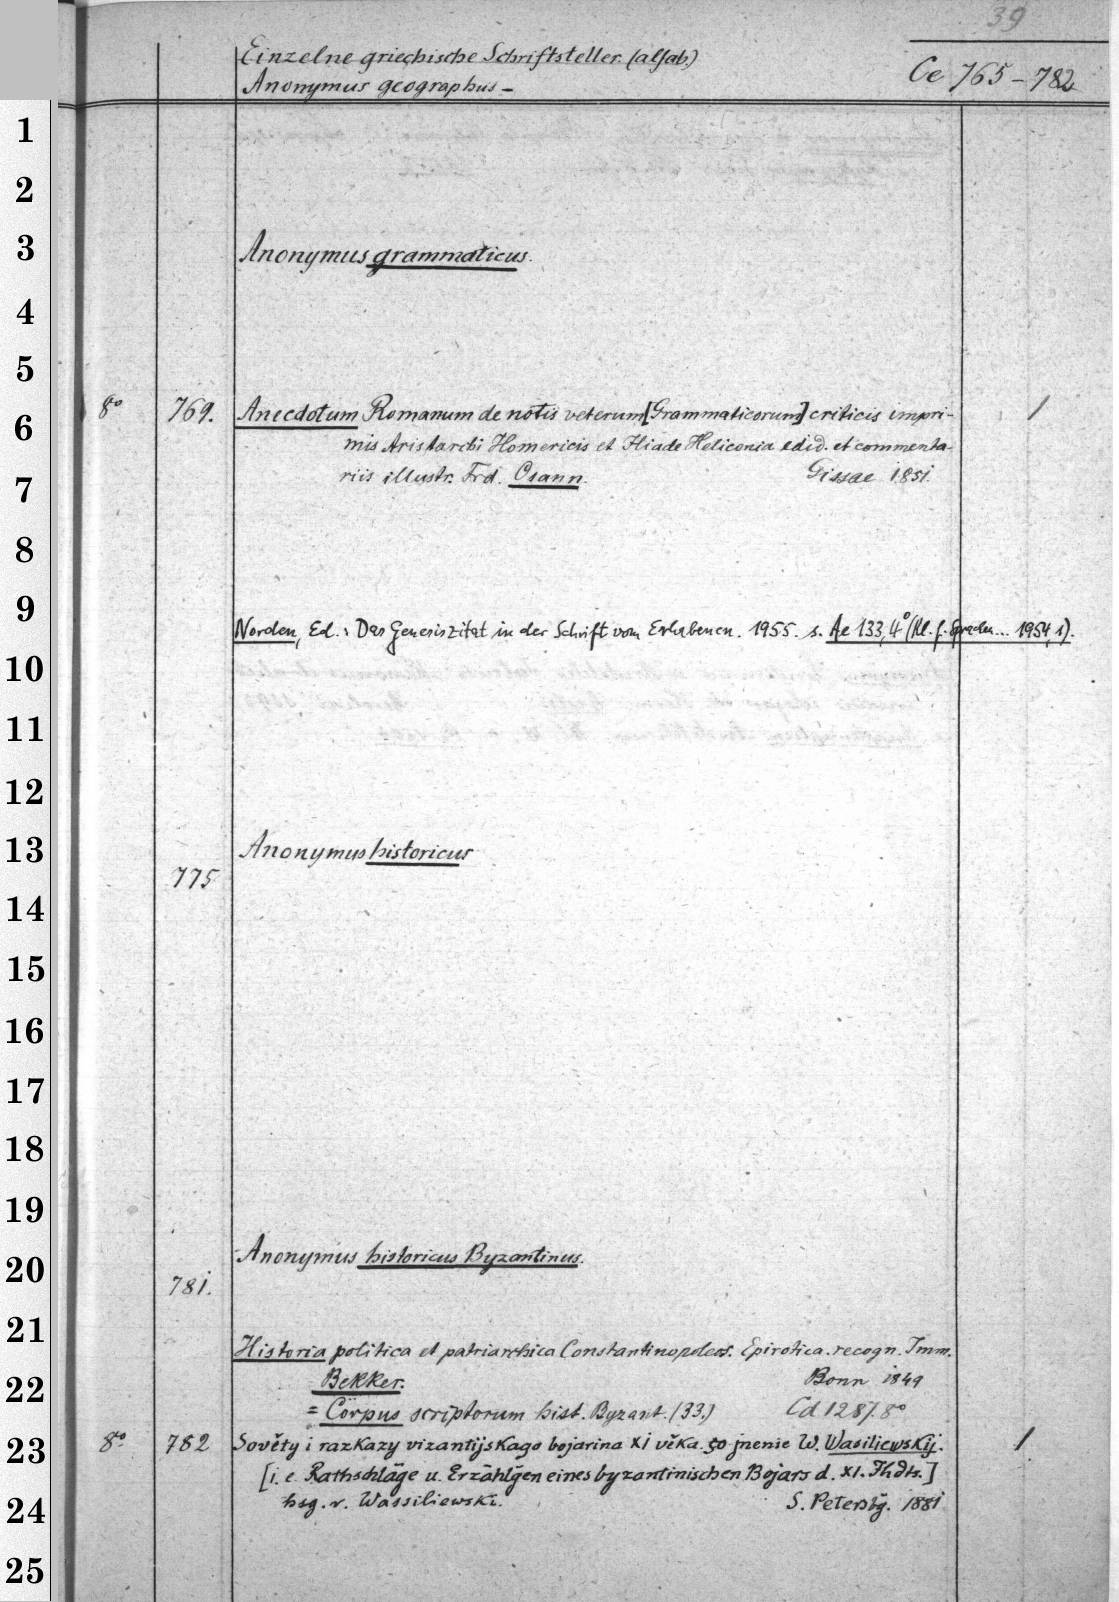 39
Einzelne griechische Schriftsteller. (alfab.)
Anonymus geographus –
Ce 765 – 782
1
2
3 Anonymus grammaticus.
4
5
8° 769. Anecdotum Romanum de notis veterum [Grammaticorum] criticis impri- 1
6
mis Aristarchi Homericis et Iliade Heliconia edid. et commenta-
7 riis illustr. Frd. Osann. Gissae 1851.
8
9
Norden, Ed.: Das Genesiszitat in der Schrift vom Erhabenen. 1955. s. Ae 133,4° (Kl. f. Sprachen... 1954,1).
10
11
12
13 Anonymus historicus
775
14
15
16
17
18
19
Anonymus historicus Byzantinus.
20
781.
21
Historia politica et patriarchica Constantinopoleos. Epirotica. recogn. Imm.
22 Bekker. Bonn 1849
= Corpus scriptorum hist. Byzant. (33.) Cd 1287. 8°
23 8° 782 Sověty i razkazy vizantijskago bojarina XI věka. jnenie W. Wasiliewskij. 1
[i. e. Rathschläge u. Erzählgen eines byzantinischen Bojars d. XI. Jhdts.]
24 hsg. v. Wassiliewski. S. Petersbg. 1881
25